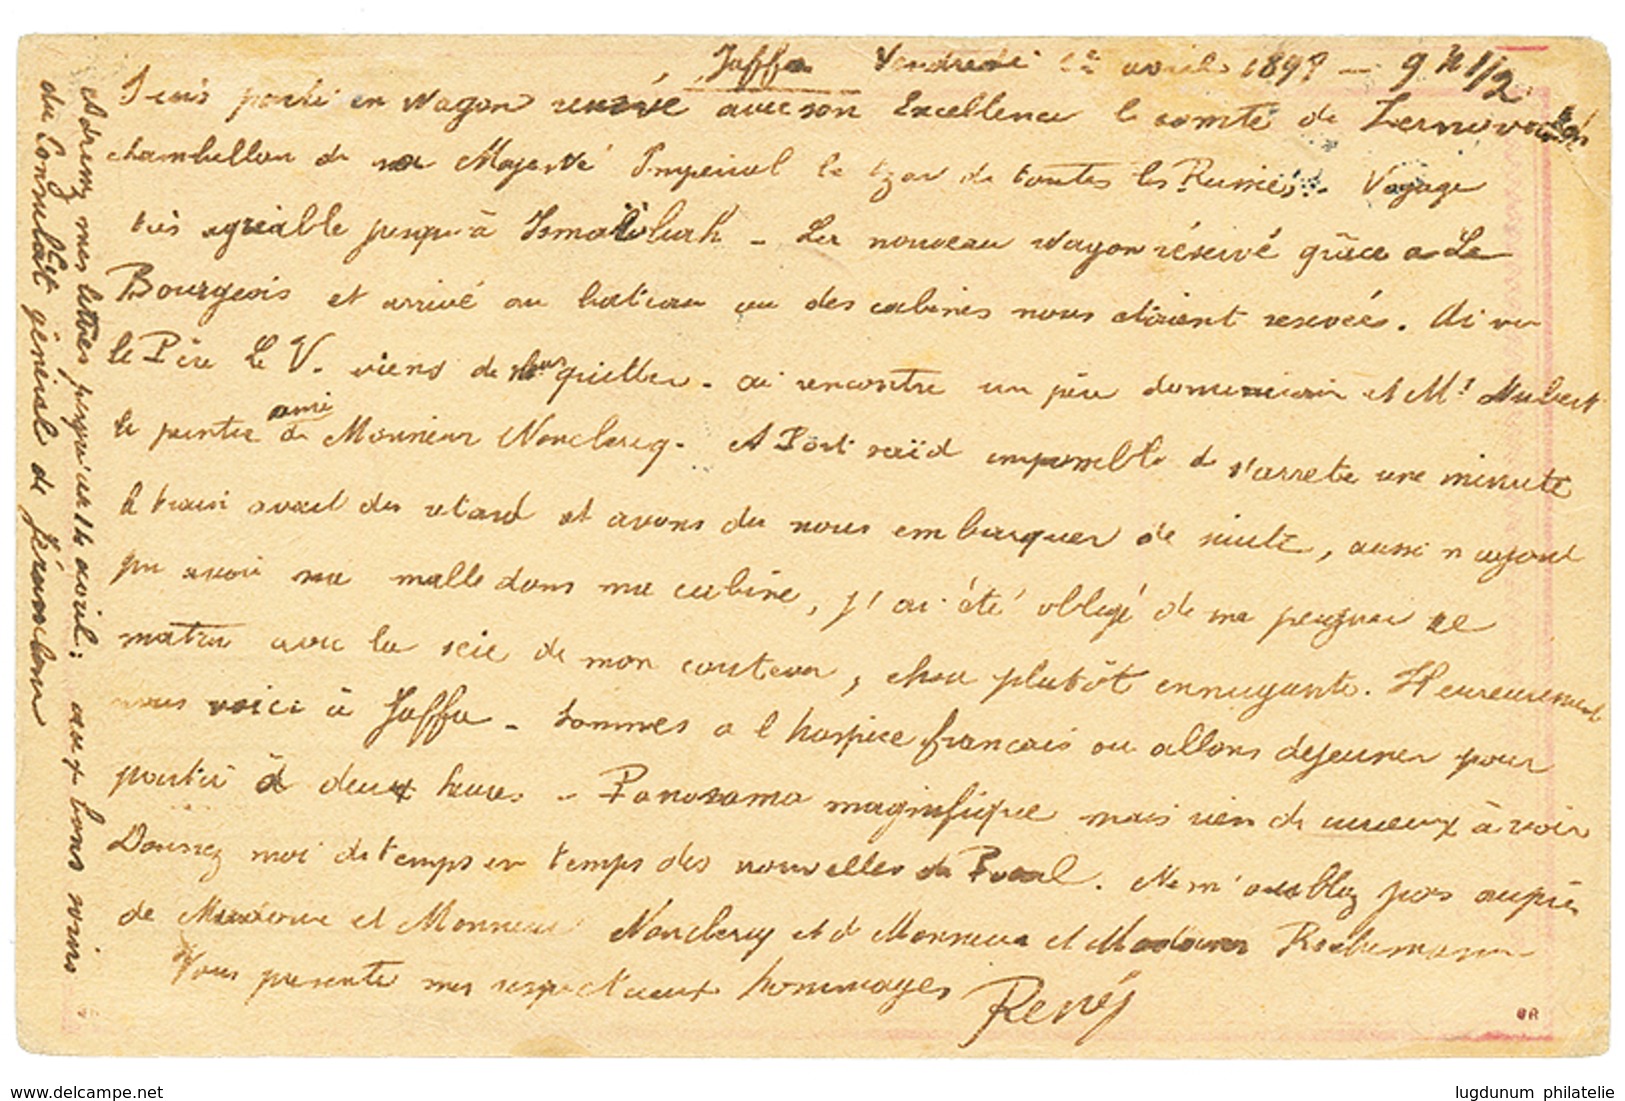 Jaffa Vendredi 1er avril 1898 — 9 h 1/2
Suis parti en wagon réservé avec son Excellence le comte de
chambellan de sa Majesté Imperial le tzar de toutes les Russies. Voyage
très agréable jusqu'à Ismaïliah — La nouveau wagon réservé grâce a Le
Bourgeois et arrivé au bateau ou des cabines nous étaient reservées. Ai vu
le Père Le V. viens de nous quitter. ai rencontré un père dominicain et Mr Hubert
le peintre ami de Monsieur Nonclercq. A Port saïd impossible de s'arrete une minute
le train avait du retard et avons du nous embarquer de suite, aussi n'ayant
pu avoir ma malle dans ma cabine, j'ai été obligé de me peigner ce
matin avec la scie de mon couteau, chose plutôt ennuyante. Heureusement
nous voici à Jaffa — sommes a l'hospice français ou allons dejeuner pour
partir à deux heures — Panorama magnifique mais rien de curieux à voir
Donnez moi de temps en temps des nouvelles de . Ne m'oubliez pas auprès
de Madame et Monsieur Nonclercq et de Monsieur et Madame
Vous presente mes respectueux hommages René
Adressez mes lettres jusqu'au 14 avril : aux bons soins
du Consulat général de Jérusalem
GR
delcampe.net
lugdunum philatelie